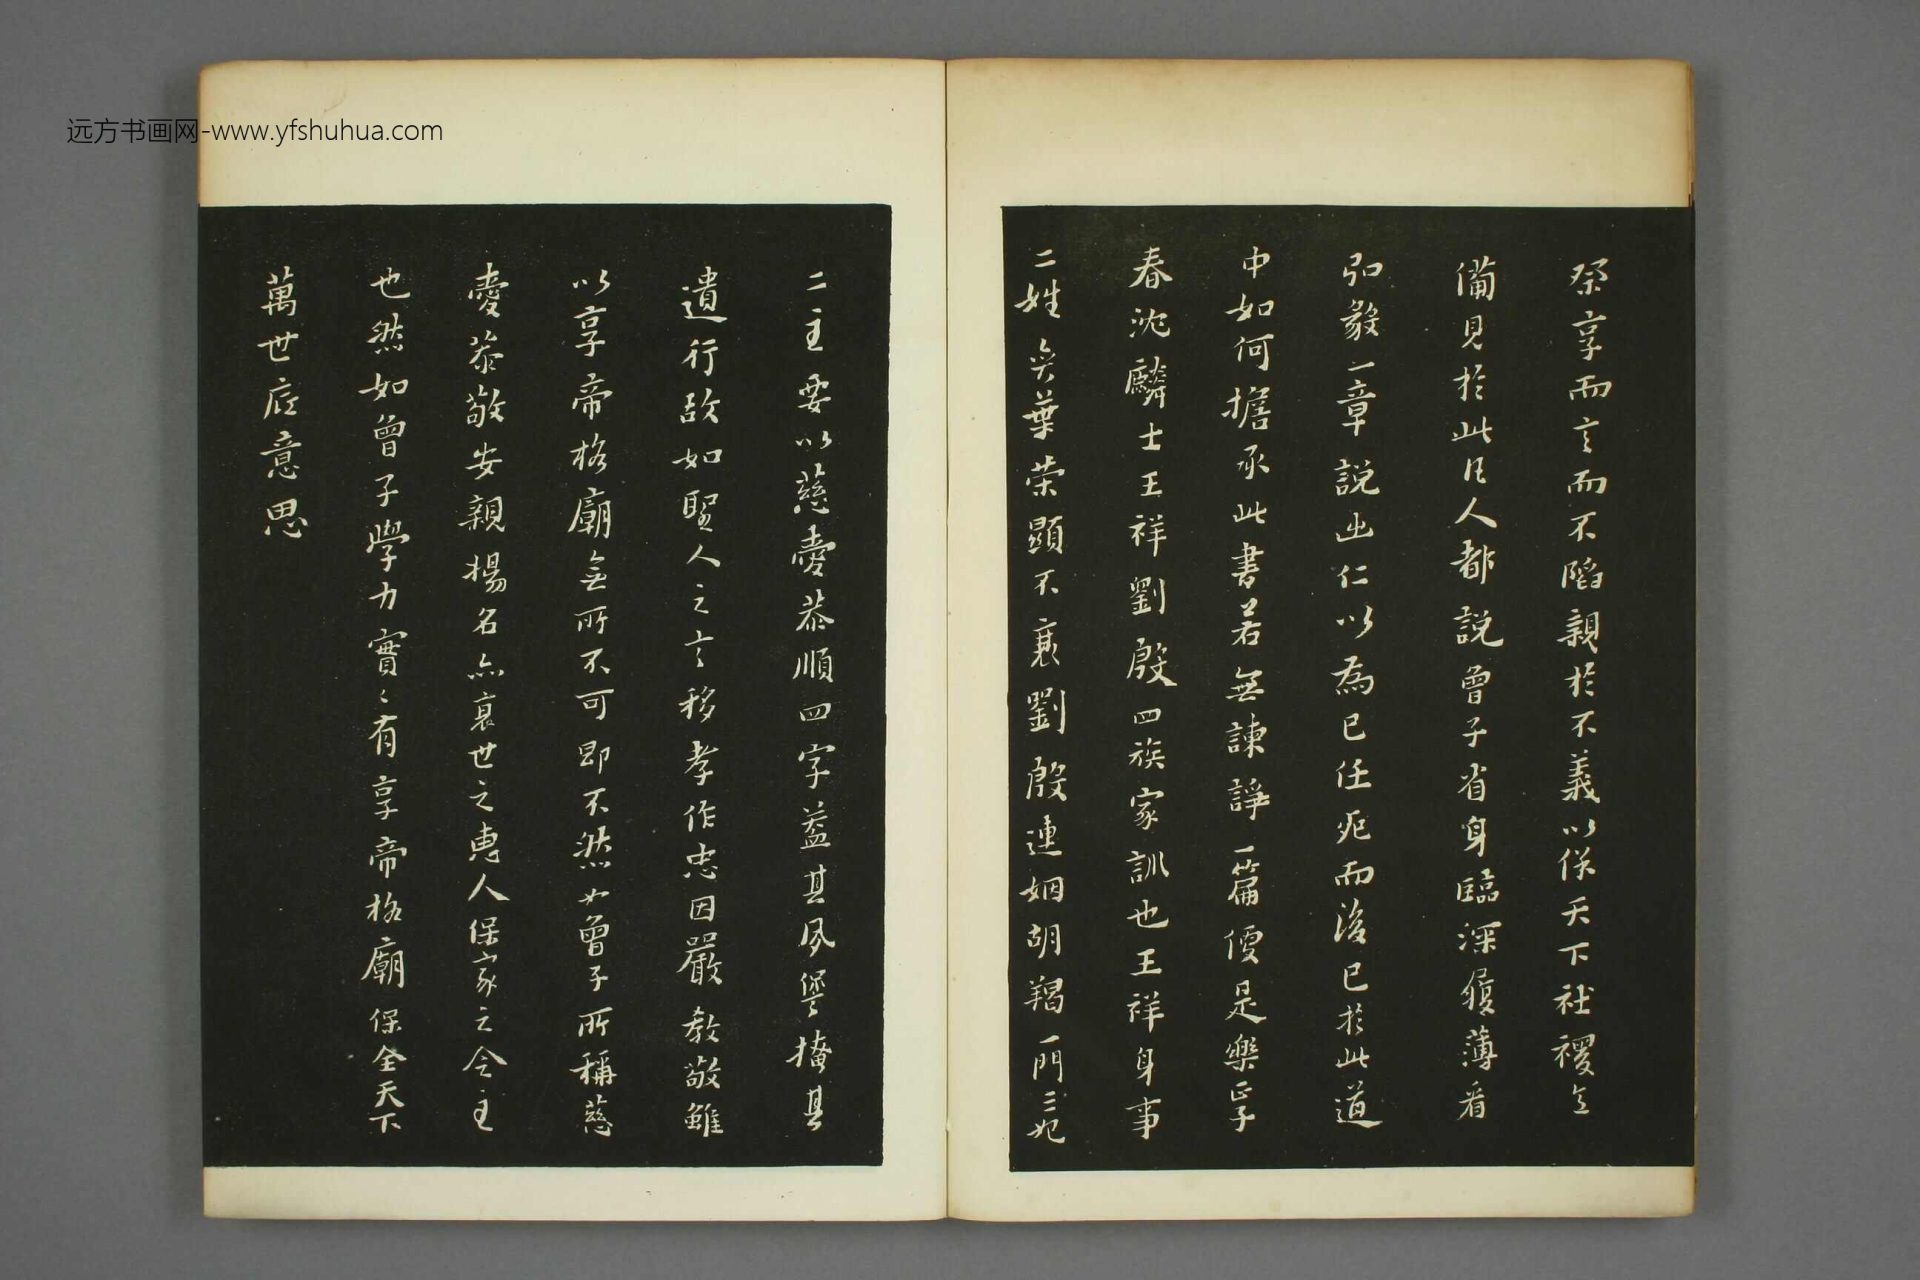 远方书画网-www.yfshuhua.com
祭享而言而不陷親於不義以保天下社稷立
備見於此后人都說曾子省身臨深履薄看
弘毅一章說出仁以為己任死而後已於此道
中如何擔承此書若無諫諍一篇便是樂正子
春沈麟士王祥劉殷四族家訓也王祥身事
二姓奕葉榮顯不衰劉殷連姻胡羯一門三妃
二主要以慈愛恭順四字蓋其夙掩其
遺行故如聖人之言移孝作忠因嚴教敬雖
以享帝格廟無所不可即不然如曾子所稱慈
愛恭敬安親揚名亦衰世之惠人保家之令主
也然如曾子學力實〻有享帝格廟保全天下
萬世底意思